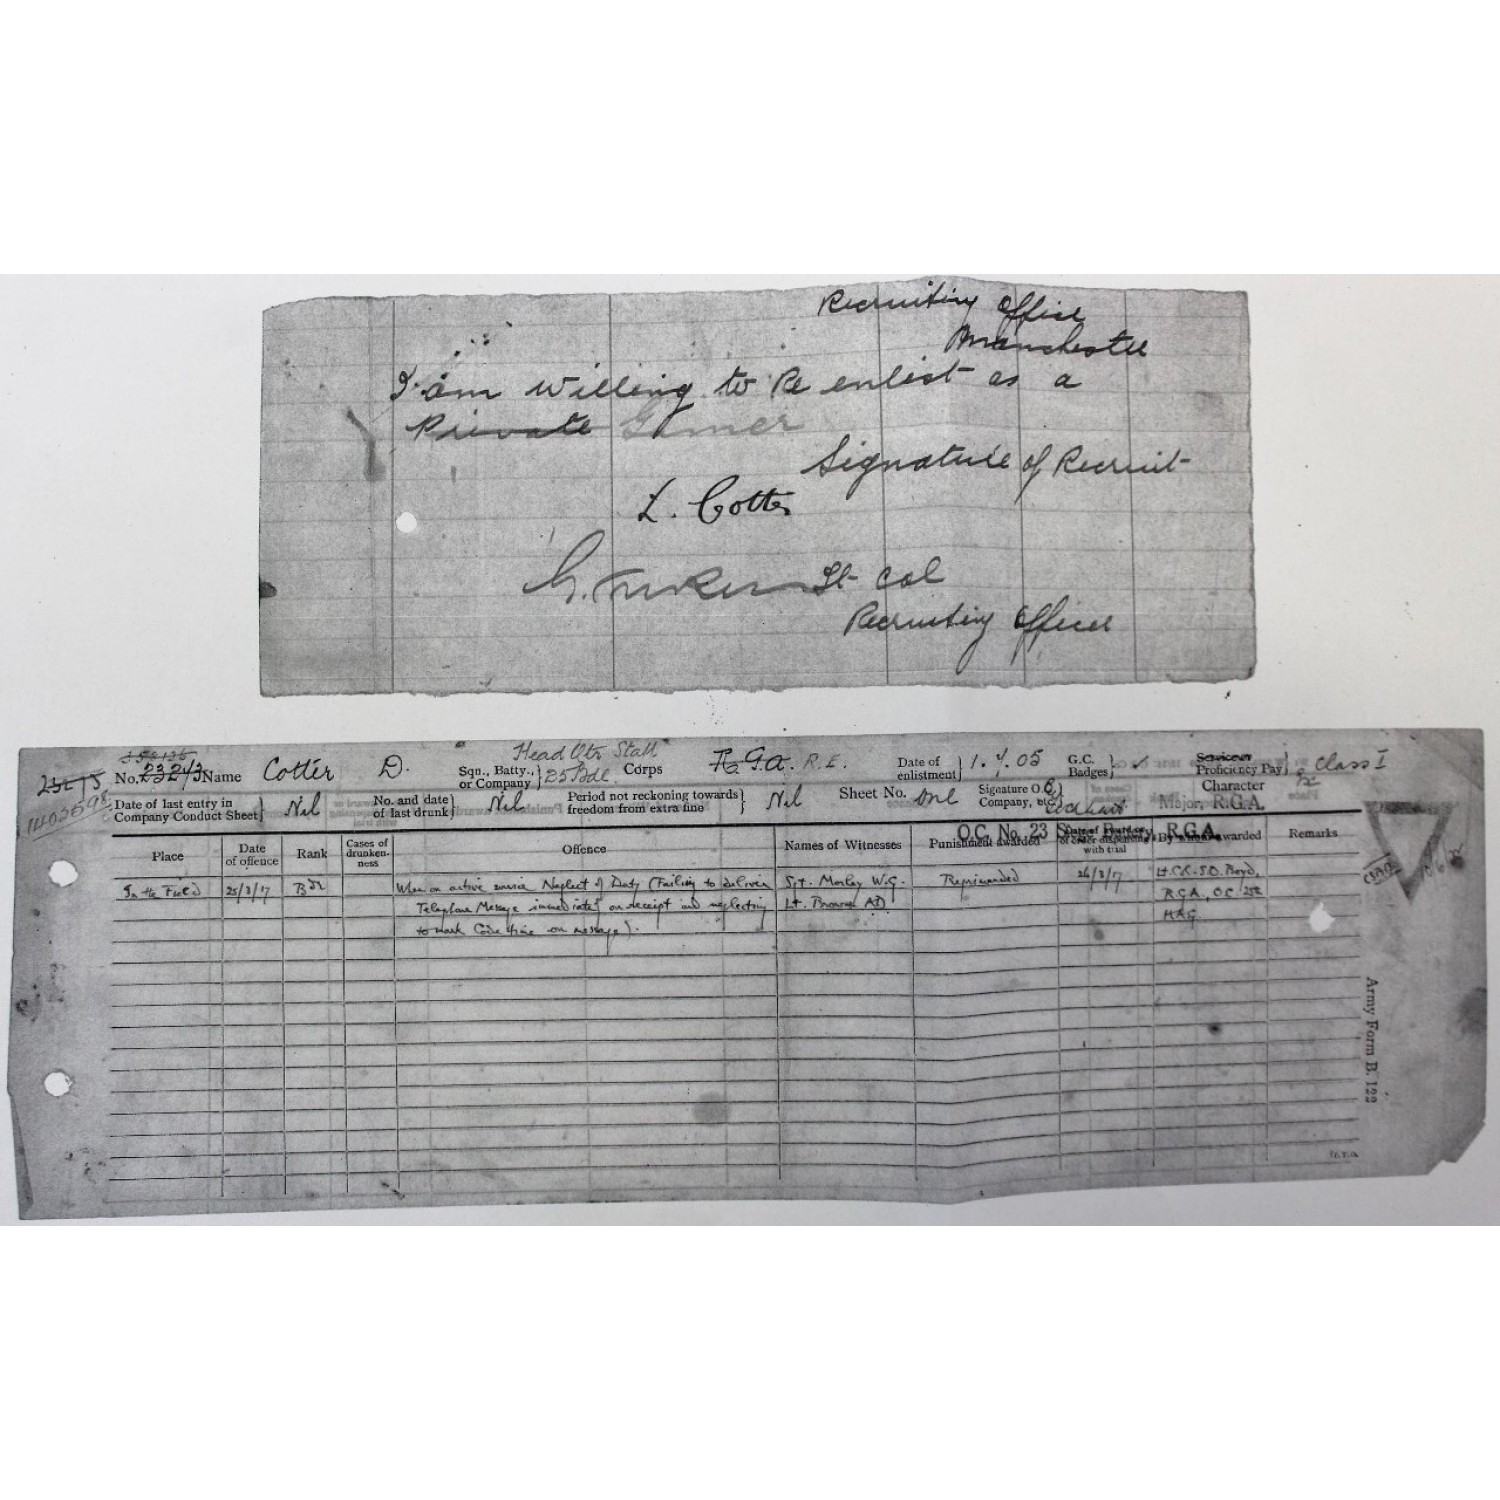 Recruiting Office
Manchester
I am willing to Re enlist as a
Private Gunner
Signature of Recruit
L. Cotter
Lt Col
Recruiting Officer
Head Qtr Staff
No. 23243 Name Cotter D. Sqn., Batty., or Company } 25 Bde. Corps R.G.A. R.E. Date of enlistment } 1.4.05 G.C. Badges } Proficiency Pay } Class I
1402598
Date of last entry in Company Conduct Sheet } Nil No. and date of last drunk } Nil Period not reckoning towards freedom from extra fine } Nil Sheet No. one Signature O.C. Company, etc. Character
Major, R.G.A.
O.C. No. 23 R.G.A.
Place Date of offence Rank Cases of drunkenness Offence Names of Witnesses Punishment awarded Date of award or of order dispensing with trial By whom awarded Remarks
In the Field 25/3/17 Bdr When on active service Neglect of Duty (Failing to deliver Sgt. Morley W.G. Reprimanded 26/3/17 Lt. Boyd,
Telephone Message immediately on receipt and neglecting Lt. Browne AD R.G.A., O.C.
to mark Code time on message). HAG
Army Form B. 122